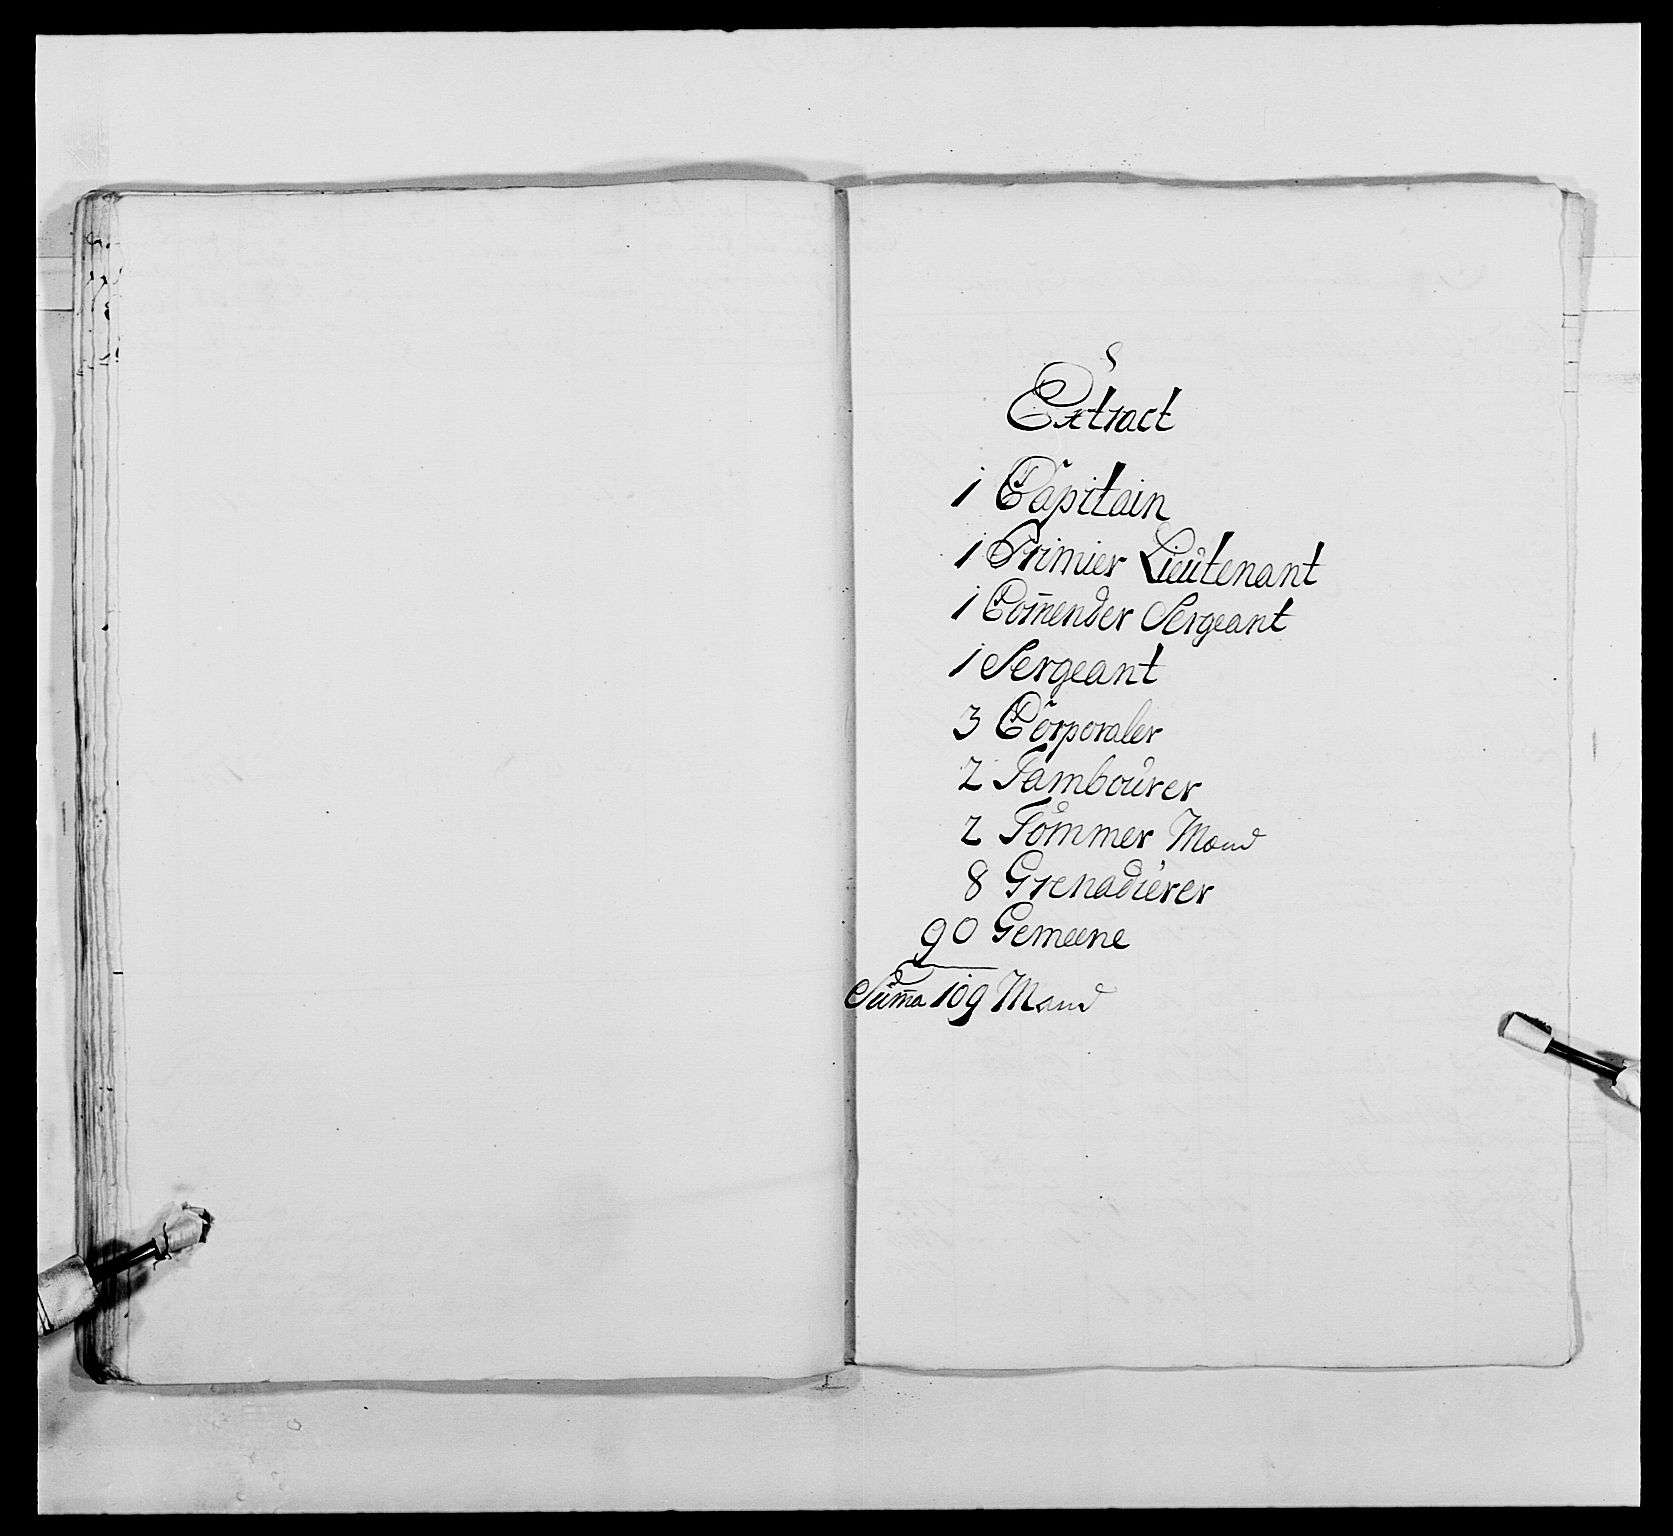 Extract
1 Capitain
1 Primier Lieutenant
1 Com̄ender Sergeant
1 Sergeant
3 Corporaler
2 Tambourer
2 Tømmer Mand
8 Grenadierer
90 Gemeene
Sum̄a 109 Mand